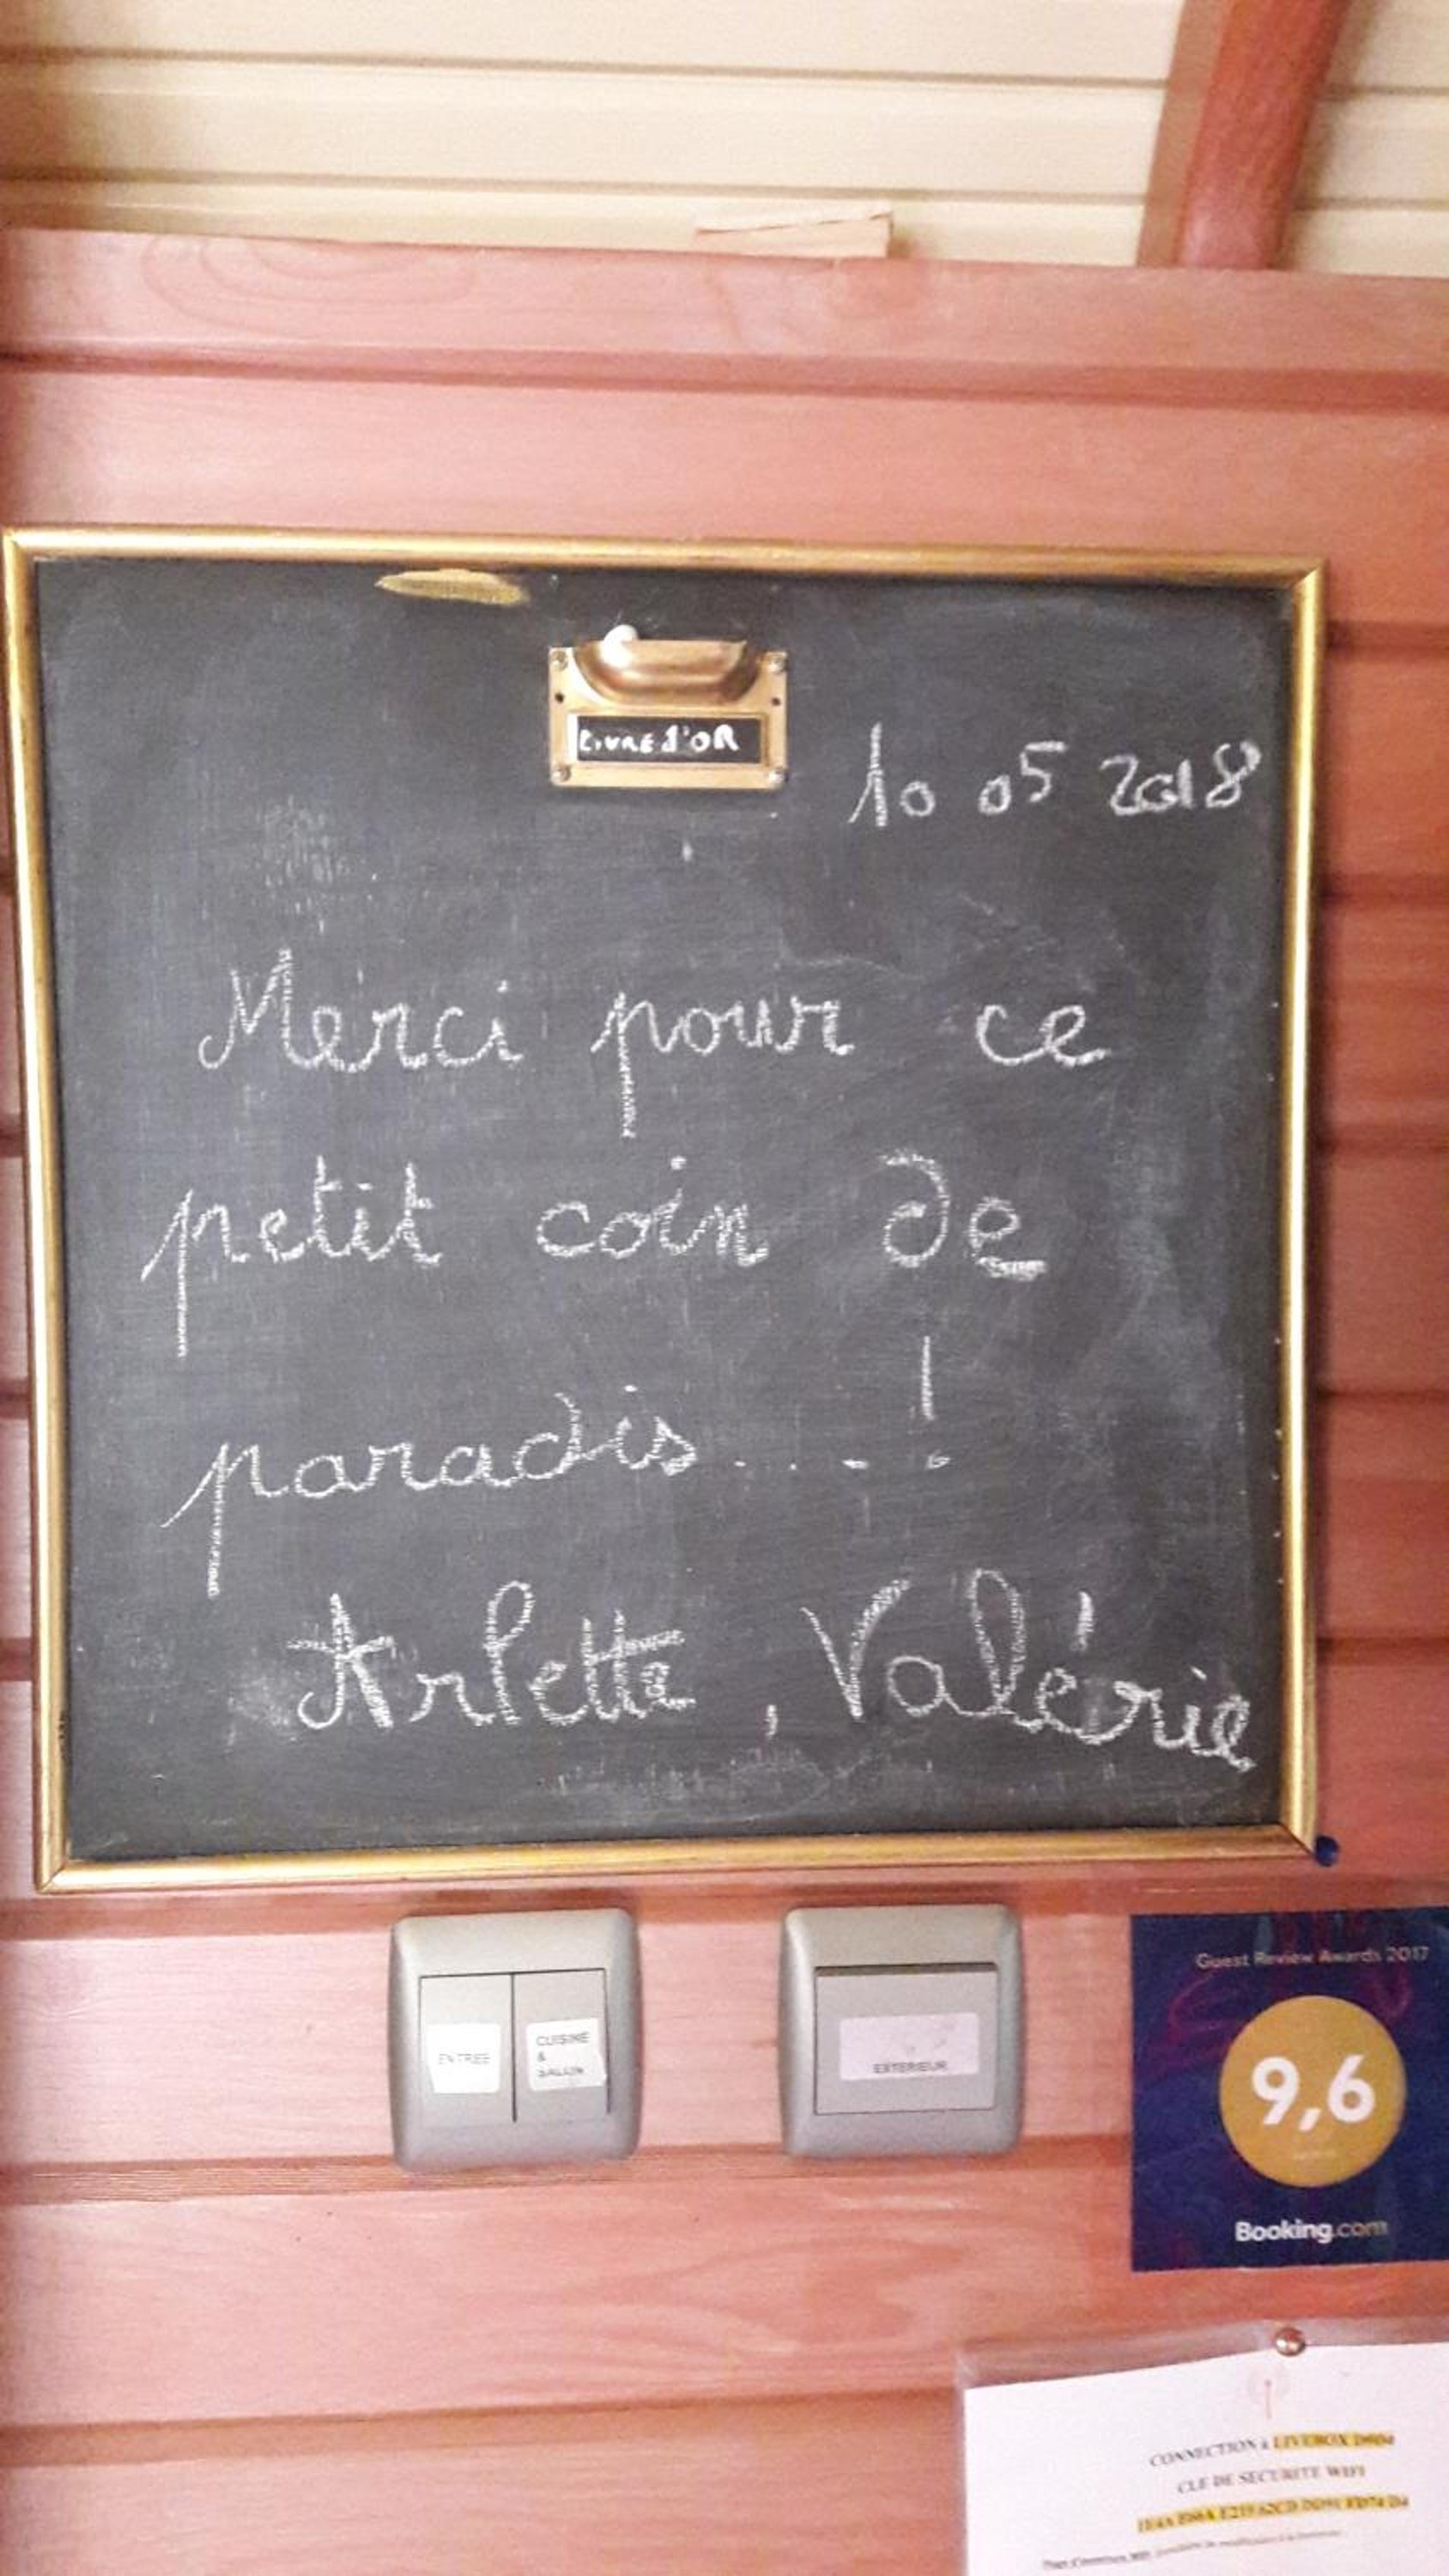 LIVRE d'OR
10 05 2018
Merci pour ce
petit coin de
paradis....!
Arlette, Valérie
ENTREE
CUISINE
&
SALON
EXTERIEUR
Guest Review Awards 2017
9,6
Booking.com
CONNECTION à LIVEBOX
CLE DE SECURITE WIFI